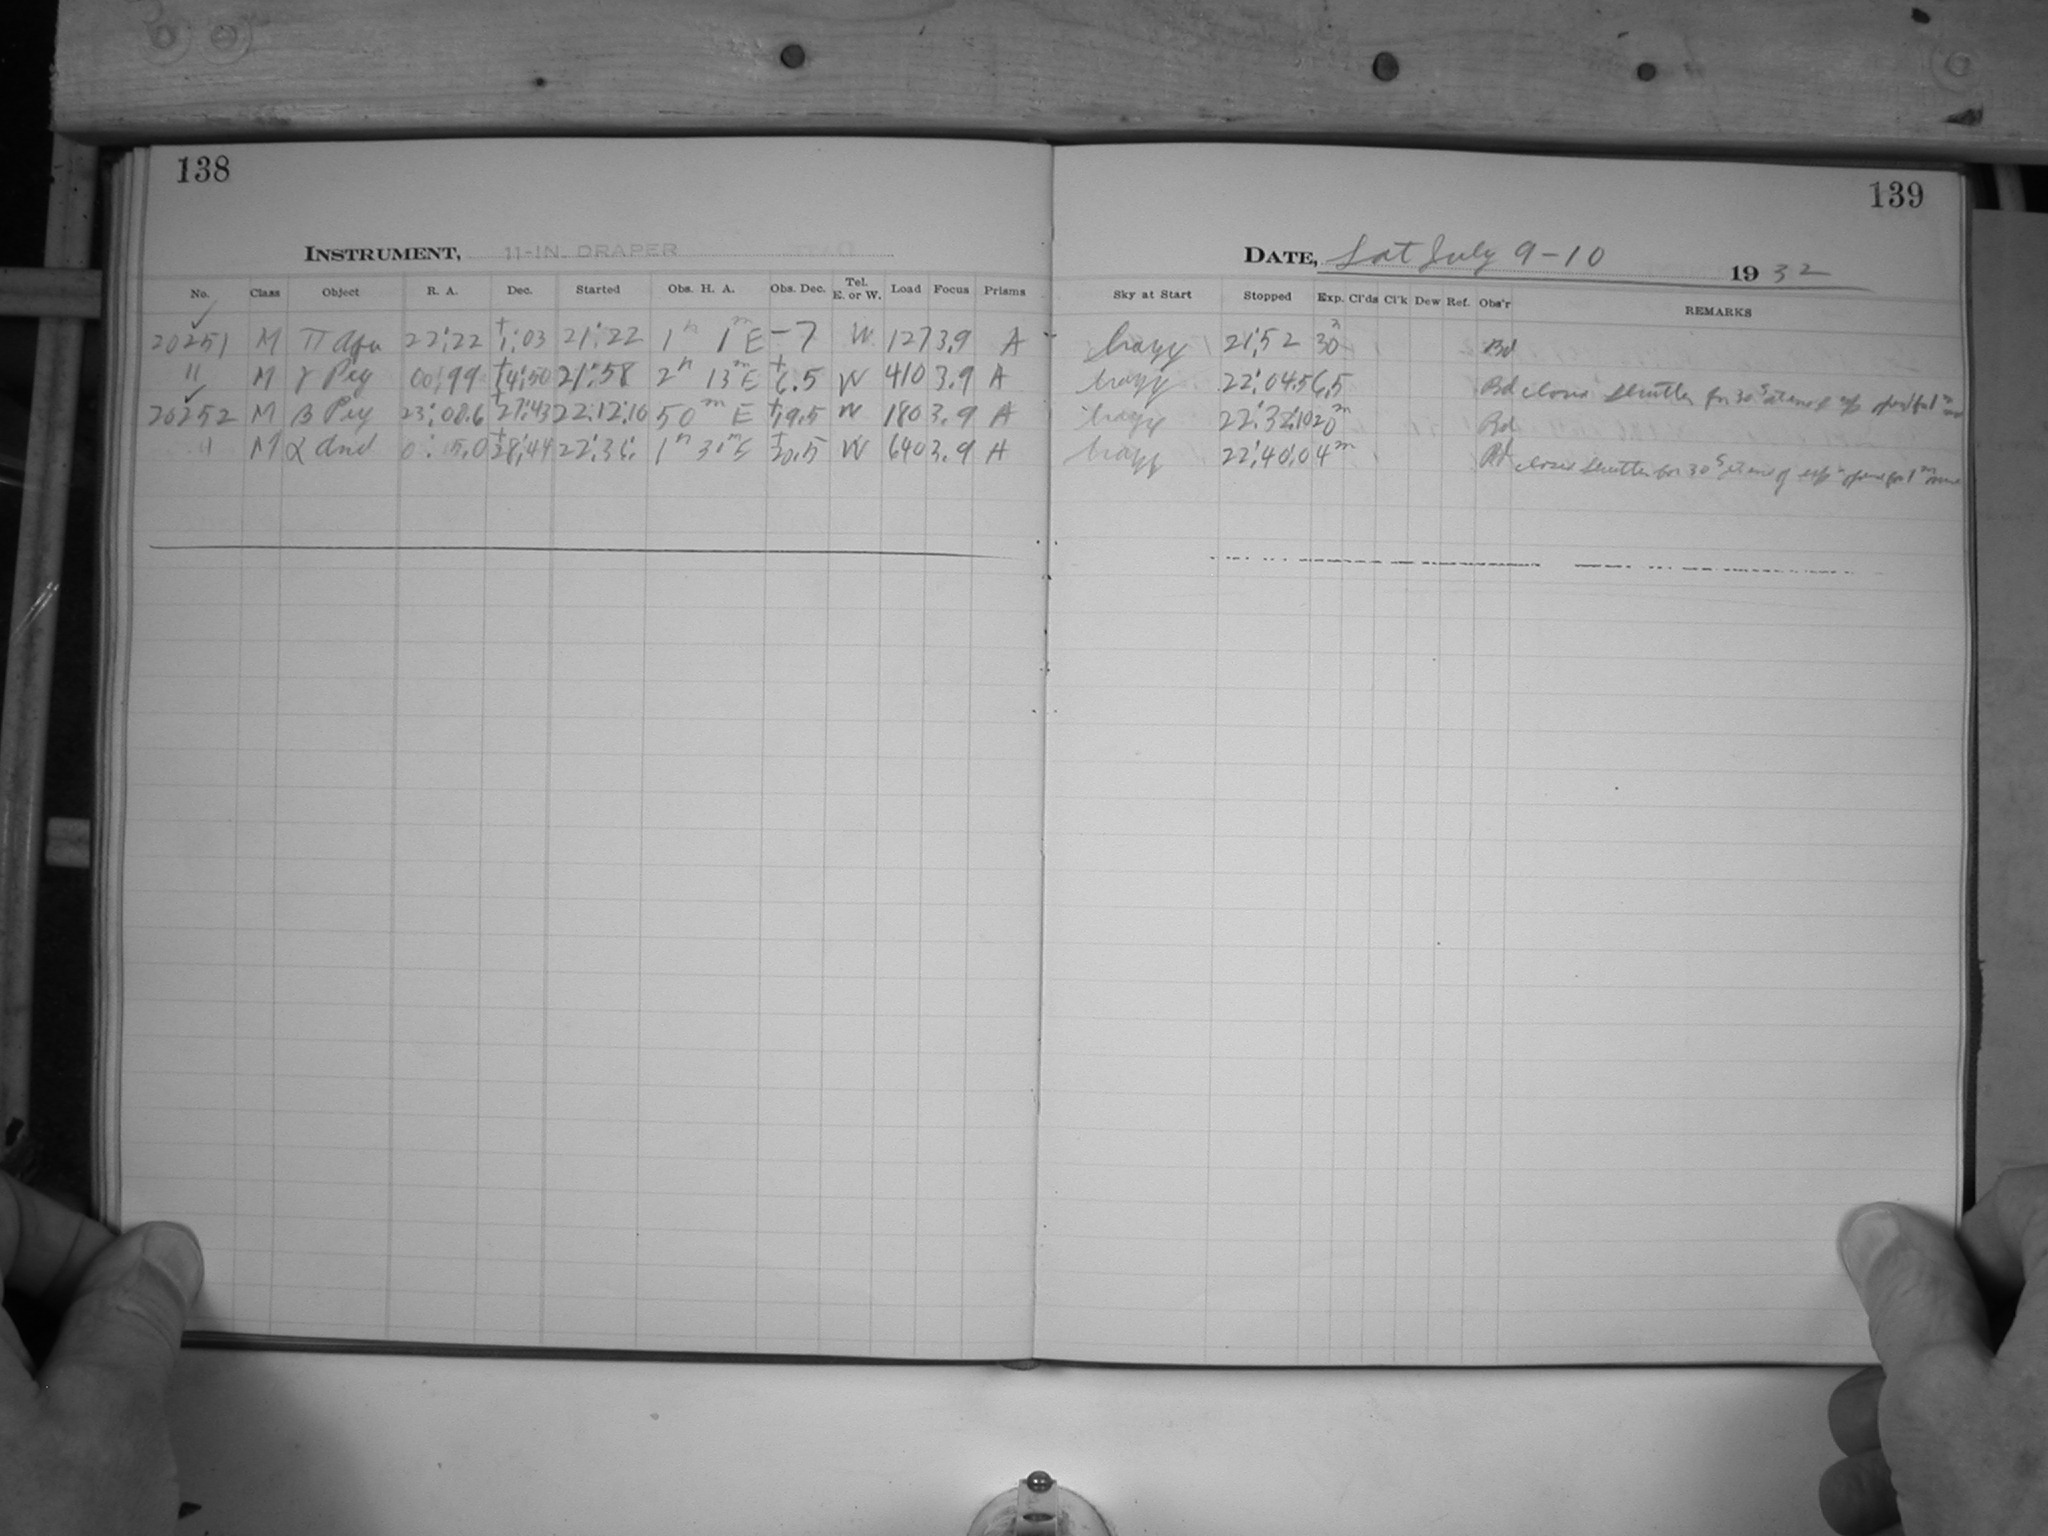 138
INSTRUMENT, 11-IN. DRAPER
No. Class Object R. A. Dec. Started Obs. H. A. Obs. Dec. Tel. E. or W. Load Focus Prisms
20251 M π Aqu 22:22 +1:03 21:22 1h 1m E -7 W 127 3.9 A
" M γ Peg 00:99 +14:50 21:58 2h 13m E +6.5 W 410 3.9 A
20252 M β Peg 23:08.6 +27:43 22:12:10 50m E +19.5 W 180 3.9 A
" M α And 0: +28:44 22:36: 1h +30.5 W 640 3.9 A
139
DATE, Sat July 9-10 1932
Sky at Start Stopped Exp. Cl'ds Cl'k Dew Ref. Obs'r REMARKS
hazy 21:52 30m Bd
hazy 22:04.5 6.5 Bd closed shutter for 30s at end of exp
hazy 22:32:10 20m Bd
hazy 22:40:0 4m Bd closed shutter for 30s at end of exp